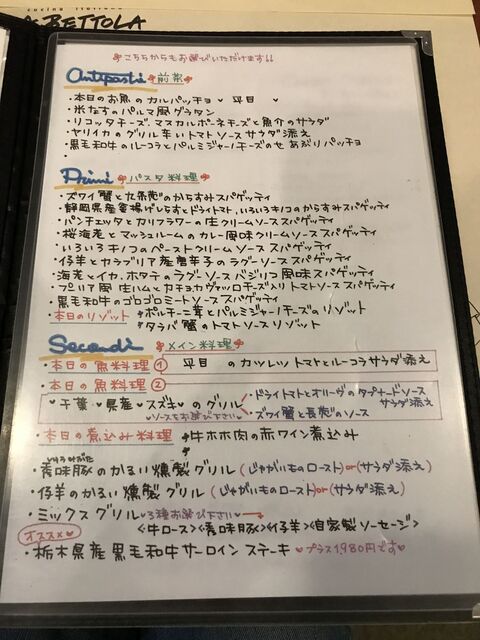 cucina italiana
BETTOLA
こちらからもお選びいただけます!!
Antipasti 前菜
・本日のお魚のカルパッチョ 平目
・米なすのパルマ風グラタン
・リコッタチーズ、マスカルポーネチーズと魚介のサラダ
・ヤリイカのグリル 辛いトマトソース サラダ添え
・黒毛和牛のルーコラとパルミジャーノチーズのせ あぶりパッチョ
・
Primi パスタ料理
・ズワイ蟹と九条葱のからすみスパゲッティ
・静岡県産釜揚げしらすとドライトマト、いろいろキノコのからすみスパゲッティ
・パンチェッタとカリフラワーの生クリームソーススパゲッティ
・桜海老とマッシュルームのカレー風味クリームソーススパゲッティ
・いろいろキノコのペーストクリームソーススパゲッティ
・仔羊とカラブリア産唐辛子のラグーソーススパゲッティ
・海老とイカ、ホタテのラグーソースバジリコ風味スパゲッティ
・プーリア風 生ハムとカチョカヴァッロチーズ入りトマトソーススパゲッティ
・黒毛和牛のゴロゴロミートソーススパゲッティ
・本日のリゾット ポルチーニ茸とパルミジャーノチーズのリゾット
タラバ蟹のトマトソースリゾット
Secondi メイン料理
・本日の魚料理① 平目 のカツレツ トマトとルーコラサラダ添え
・本日の魚料理②
千葉県産 スズキ のグリル
ソースをお選び下さい
・ドライトマトとオリーヴのタプナードソース サラダ添え
・ズワイ蟹と長葱のソース
・本日の煮込み料理 牛ホホ肉の赤ワイン煮込み
・青味豚のかるい燻製グリル (じゃがいものロースト)or(サラダ添え)
・仔羊のかるい燻製グリル (じゃがいものロースト)or(サラダ添え)
・ミックスグリル 3種お選び下さい
<牛ロース><青味豚><仔羊><自家製ソーセージ>
オススメ
・栃木県産黒毛和牛サーロインステーキ プラス1,980円です